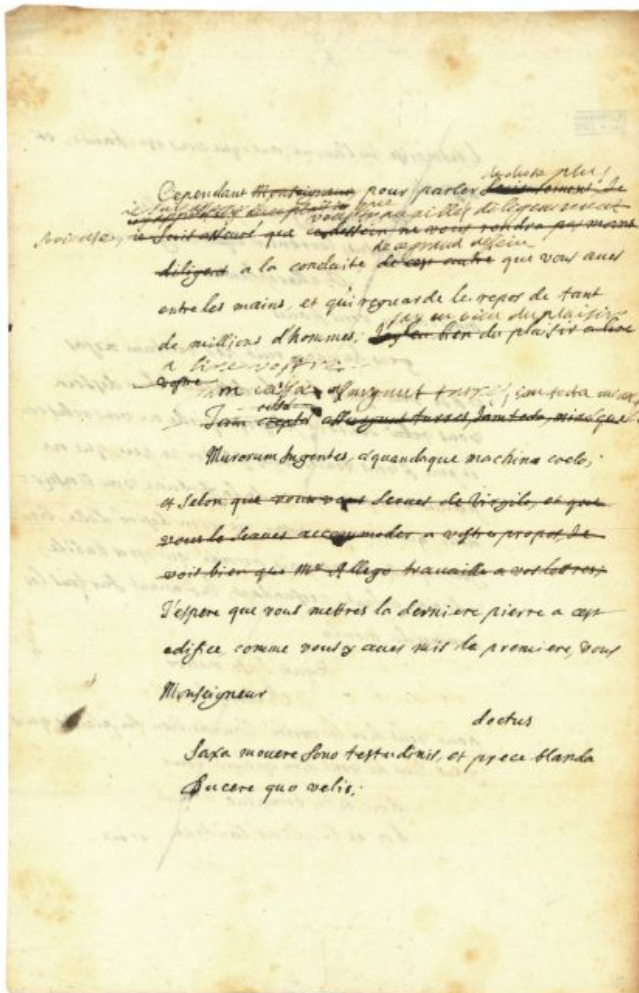 de chose plus
Cependant Monseigneur pour parler
serieuse, ie suis asseuré que ce dessein ne vous rendra pas moins
de ce grand dessein
diligent a la conduite de cest autre que vous aues
entre les mains, et qui reguarde le repos de tant
j'ay eu bien du plaisir
de millions d'hommes; J'ay eu bien du plaisir a lire
a lire vostre
vostre
Jam cessa assurgunt turres, iam tecta
Jam cæpta assurgunt turres Jam tecta, minæque
Murorum Ingentes, æquandaque machina coelo;
et selon que vous vous serues de Virgile, et que
vous le scaues accommoder a vostre propos, Je
vois bien que Mr Allego trauaille a vos lettres;
J'espere que vous mettres la derniere pierre a cest
edifice, comme vous y aues mis la premiere, vous
Monseigneur
doctus
Saxa mouere sono testudinis, et prece blanda
Ducere quo velis;